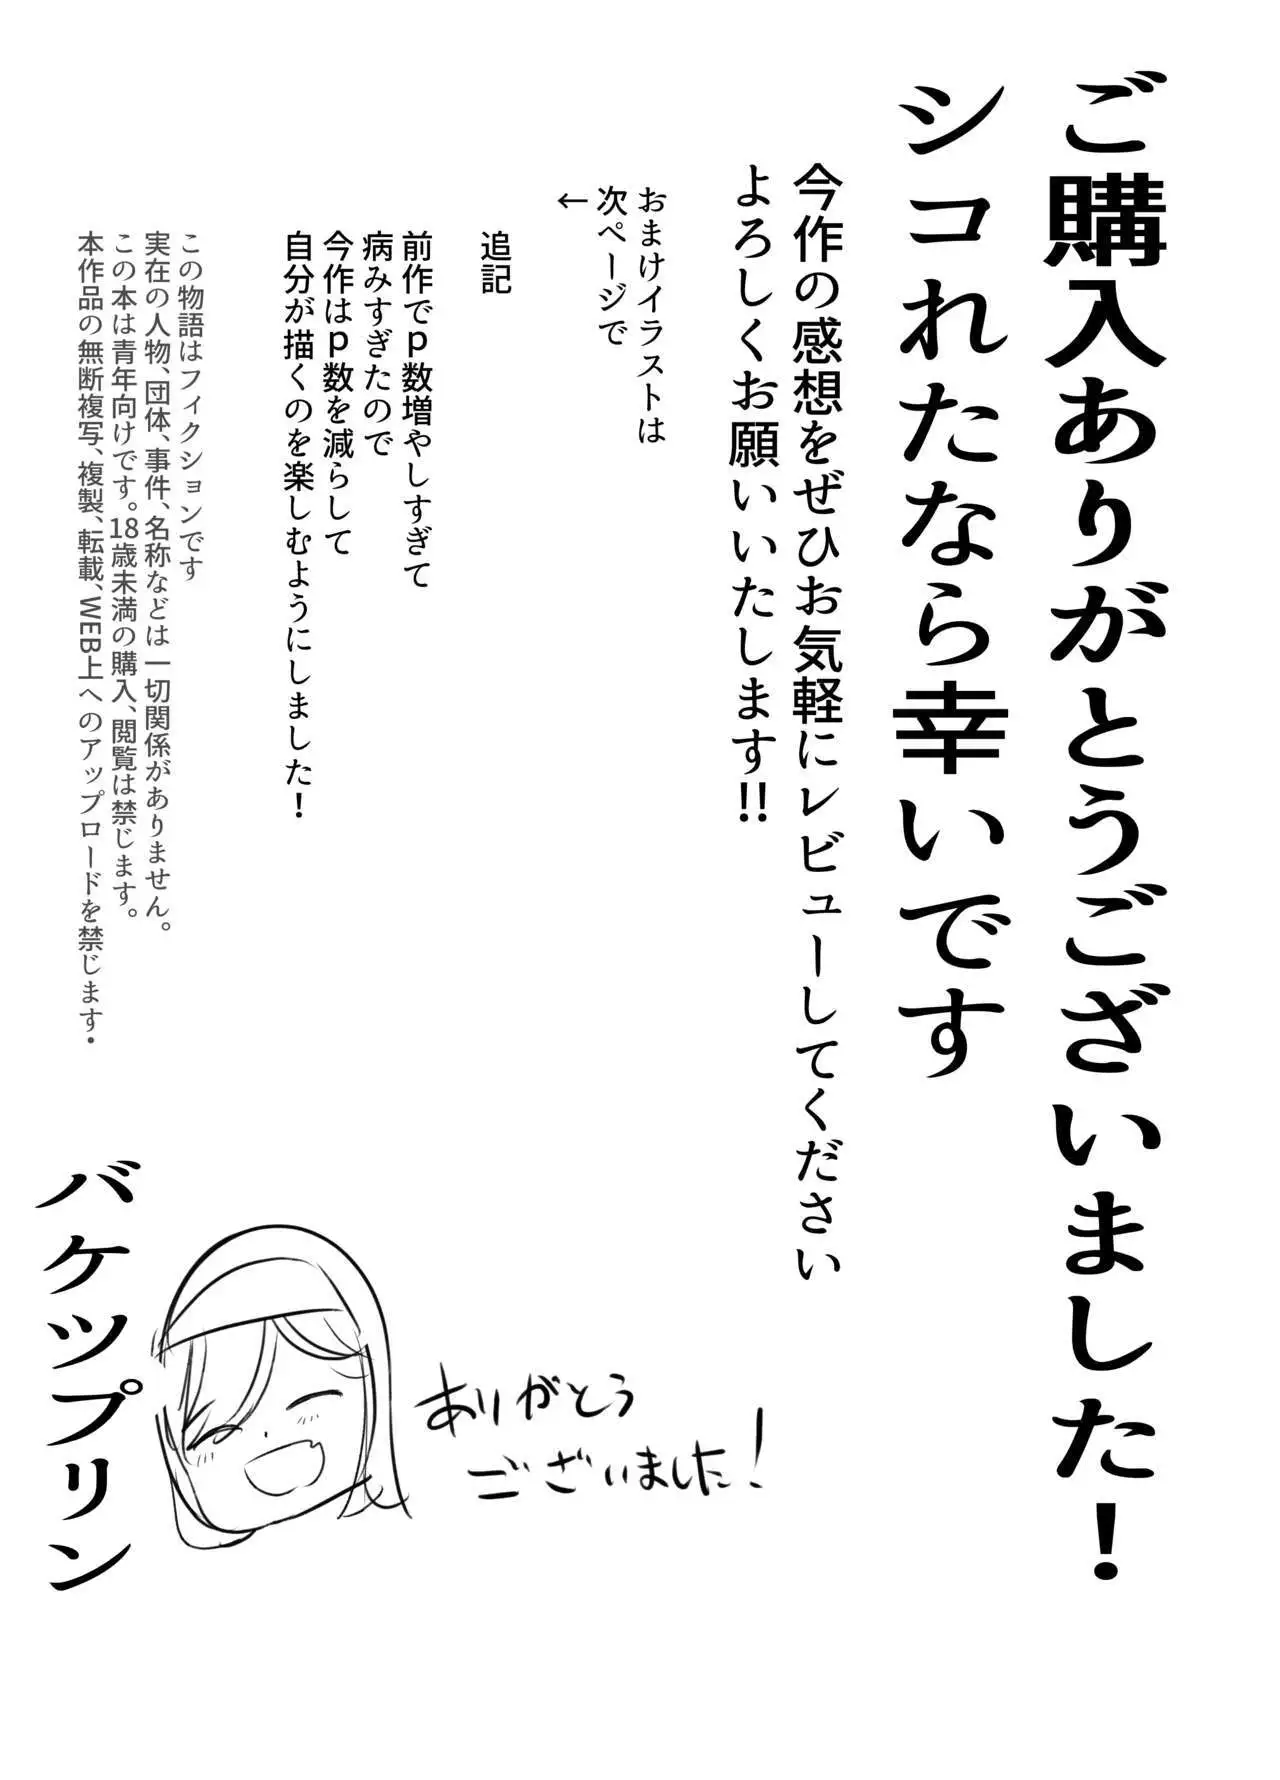 ご購入ありがとうございました!
シコれたなら幸いです
今作の感想をぜひお気軽にレビューしてください
よろしくお願いいたします!!
おまけイラストは
次ページで
←
追記
前作でp数増やしすぎて
病みすぎたので
今作はp数を減らして
自分が描くのを楽しむようにしました!
この物語はフィクションです
実在の人物、団体、事件、名称などは一切関係がありません。
この本は青年向けです。18歳未満の購入、閲覧は禁じます。
本作品の無断複写、複製、転載、WEB上へのアップロードを禁じます・
ありがとう
ございました!
バケツプリン